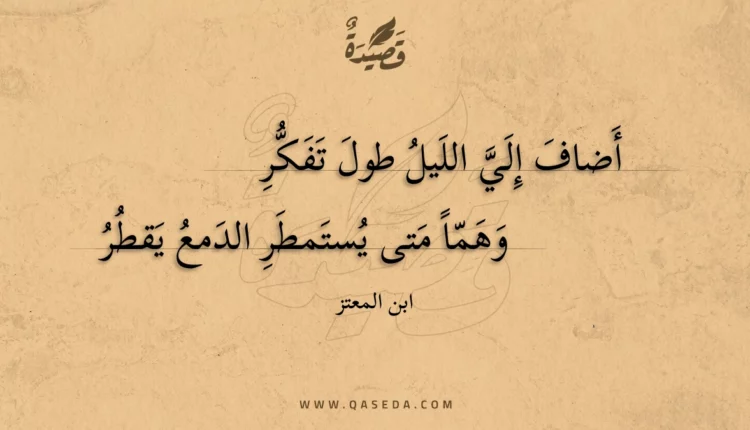 قَصِيْدَةٌ
أَضافَ إِلَيَّ اللَيلُ طولَ تَفَكُّرِ
وَهَمّاً مَتى يُستَمطَرِ الدَمعُ يَقطُرُ
ابن المعتز
WWW.QASEDA.COM